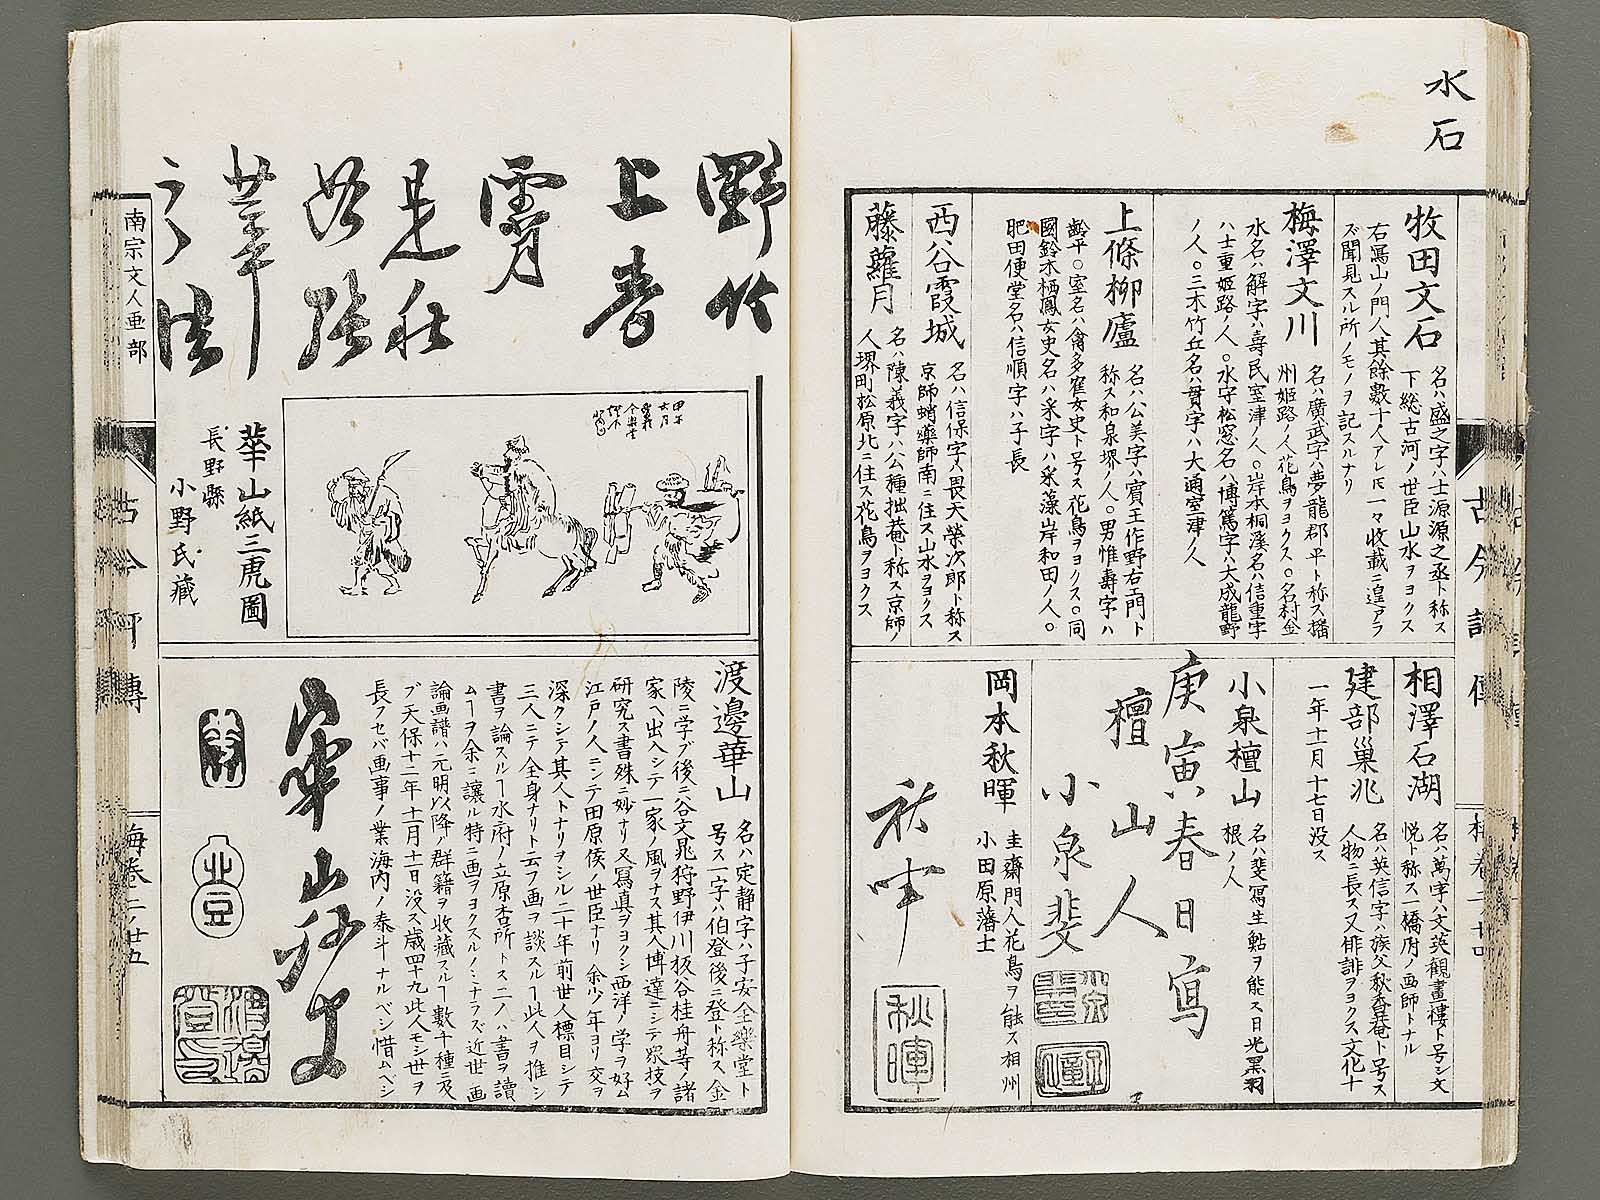 水石
牧田文石
名ハ盛之字ハ士源源之丞ト称ス
下総古河ノ世臣山水ヲヨクス
右寫山ノ門人其餘數十人アレ𪜈一々收載ニ遑アラ
ズ聞見スル所ノモノヲ記スルナリ
梅澤文川
名ハ廣武字ハ夢龍郡平ト称ス播
州姫路ノ人花鳥ヲヨクス○名村金
水名ハ解字ハ壽民室津ノ人○岸本桐溪名ハ信重字
ハ士重姫路ノ人○水守松窓名ハ博篤字ハ大成龍野
ノ人○三木竹丘名ハ貫字ハ大通室津ノ人
上條柳廬
名ハ公美字ハ賓王作野右エ門ト
称ス和泉堺ノ人○男惟壽字ハ
齡平○室名ハ禽多窪女史ト号ス花鳥ヲヨクス○同
國鈴木栖鳳女史名ハ采字ハ采藻岸和田ノ人○
肥田便堂名ハ信順字ハ子長
西谷霞城
名ハ信保字ハ畏天榮次郎ト称ス
京師蛸藥師南ニ住ス山水ヲヨクス
藤蘿月
名ハ陳義字ハ公種拙菴ト称ス京師ノ
人堺町松原北ニ住ス花鳥ヲヨクス
相澤石湖
名ハ萬字ハ文英觀畫樓ト号シ文
悦ト称ス一橋府ノ画師トナル
建部巢兆
名ハ英信字ハ族父秋香菴ト号ス
人物ニ長ス又俳諧ヲヨクス文化十
一年十一月十七日没ス
小泉檀山
名ハ斐寫生鮎ヲ能ス日光黑羽
根ノ人
庚寅春日寫
檀山人
小泉斐
岡本秋暉
圭齋門人花鳥ヲ能ス相州
小田原藩士
秋暉
秋暉
古今
梅卷二ノ廿四
野竹
上春
霄
是秋
華
之
華山紙三虎圖
長野縣
小野氏藏
渡邊華山
名ハ定静字ハ子安全樂堂ト
号ス一字ハ伯登後ニ登ト称ス金
陵ニ学ブ後ニ谷文晁狩野伊川板谷桂舟等諸
家ヘ出入シテ一家ノ風ヲナス其人博達ニシテ衆技ヲ
研究ス書殊ニ妙ナリ又寫真ヲヨクシ西洋ノ学ヲ好ム
江戸ノ人ニシテ田原侯ノ世臣ナリ余少年ヨリ交ヲ
深クシテ其人トナリヲシル二十年前世人標目シテ
三人ニテ全身ナリト云フ画ヲ談スルヿ此人ヲ推シ
書ヲ論スルヿ水府ノ立原杏所トス二ノハ書ヲ讀
ムヿヲ余ニ讓ル特ニ画ヲヨクスルノミナラズ近世画
論画譜ハ元明以降ノ群籍ヲ收藏スルヿ數千種ニ及
ブ天保十二年十月十一日没ス歳四十九此人モシ世ヲ
長フセバ画事ノ業海内ノ泰斗ナルベシ惜ムベシ
華山
南宗文人画部
古今
傳
梅卷二ノ廿五